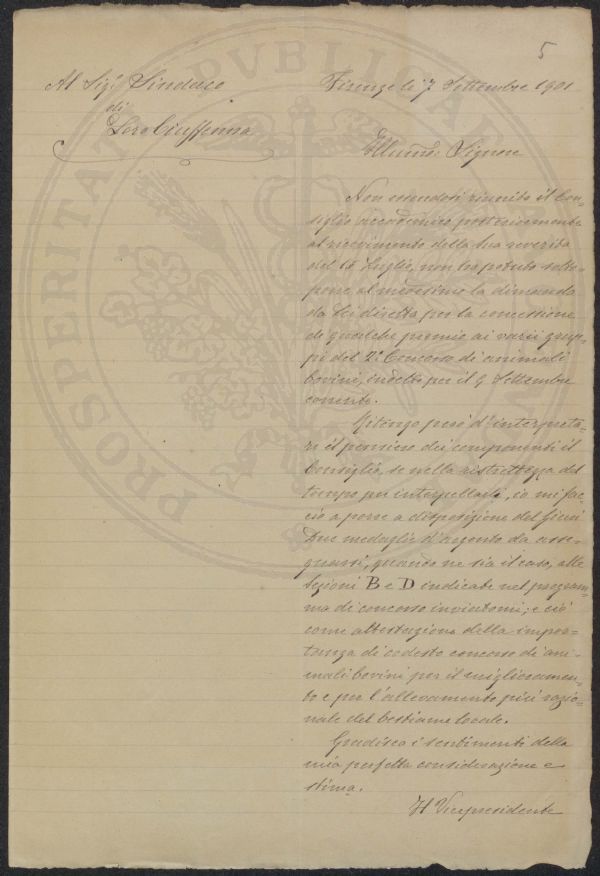 5
Al Sigr Sindaco
di
Loro Ciuffenna
Firenze li 7 Settembre 1901
Illumo: Signore
Non essendosi riunito il Con-
siglio accademico posteriormente
al ricevimento della sua reverita
del 18 Luglio, non ho potuto sotto-
porre al medesimo la dimanda
da Lei diretta per la concessione
di qualche premio ai varii grup-
pi del 2o Concorso di animali
bovini, indetto per il 9 Settembre
corrente.
Ritengo però d'interpreta-
re il pensiero dei componenti il
Consiglio, se nella ristrettezza del
tempo per interpellarli, io mi fac-
cio a porre a disposizione del Giurì
due medaglie d'argento da asse-
gnarsi, quando ne sia il caso, alle
Sezioni B e D indicate nel program-
ma di concorso inviatomi; e ciò
come attestazione della impor-
tanza di codesto concorso di ani-
mali bovini per il miglioramen-
to e per l'allevamento più razio-
nale del bestiame locale.
Gradisca i sentimenti della
mia perfetta considerazione e
stima.
Il Vicepresidente
PROSPERITATI PUBLICAE